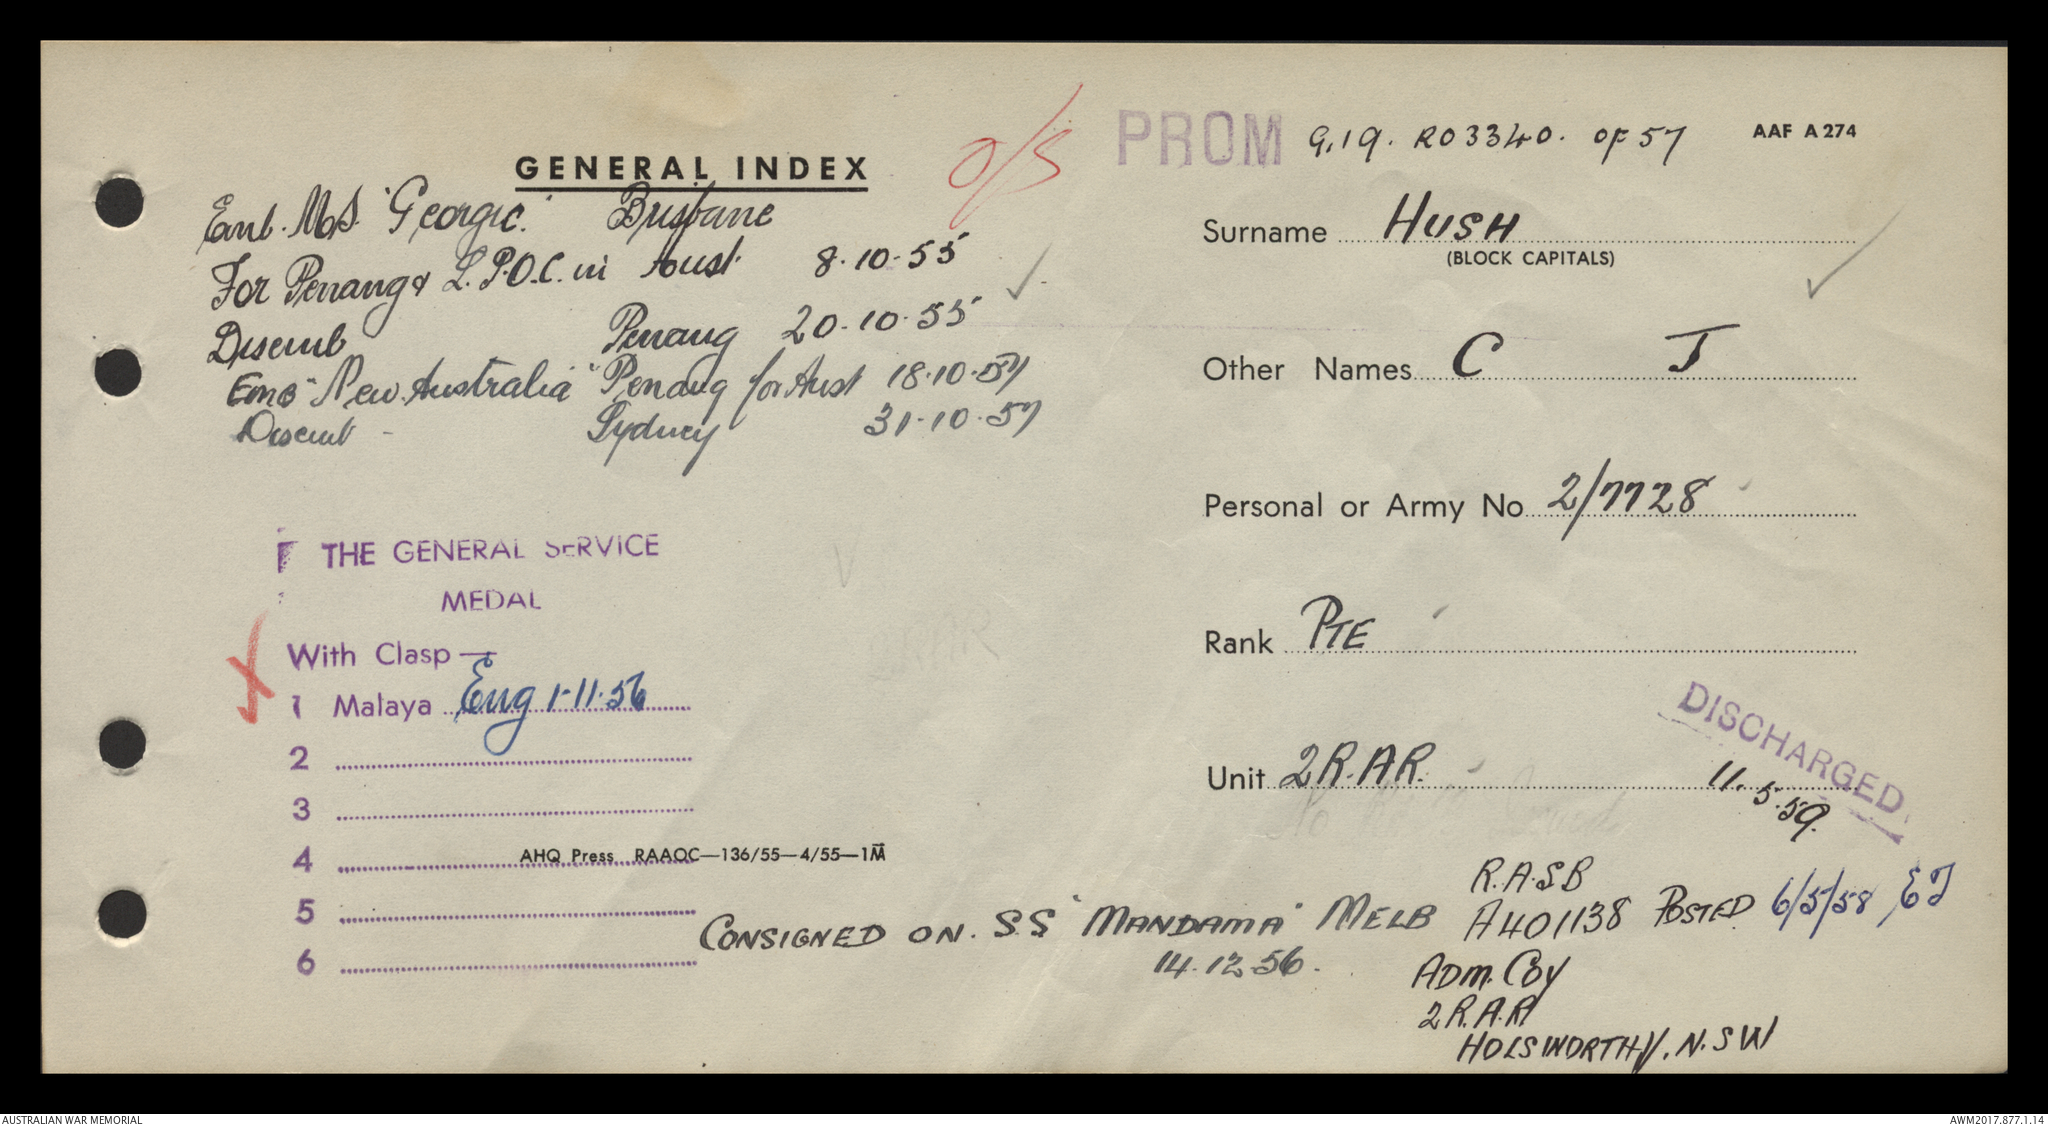 GENERAL INDEX
O/S
Emb. M.S. "Georgic." Brisbane
For Penang & L.P.O.C. in Aust. 8.10.55
Disemb Penang 20.10.55
Emb "New Australia" Penang for Aust 18.10.57
Disemb - Sydney 31.10.57
THE GENERAL SERVICE
MEDAL
With Clasp —
1 Malaya Eng 1.11.56
2
3
4
AHQ Press RAAOC—136/55—4/55—1M
5
6
CONSIGNED ON. S.S "MANDAMA" MELB
14.12.56.
PROM G.19. RO3340. OF 57
AAF A 274
Surname HUSH
(BLOCK CAPITALS)
Other Names C J
Personal or Army No 2/7728
Rank PTE
Unit 2 R.A.R.
DISCHARGED
11.5.59.
R.A.S.B
A401138 POSTED 6/5/58
ADM. COY
2 R.A.R
HOLSWORTHY. N.S.W
AUSTRALIAN WAR MEMORIAL
AWM2017.877.1.14